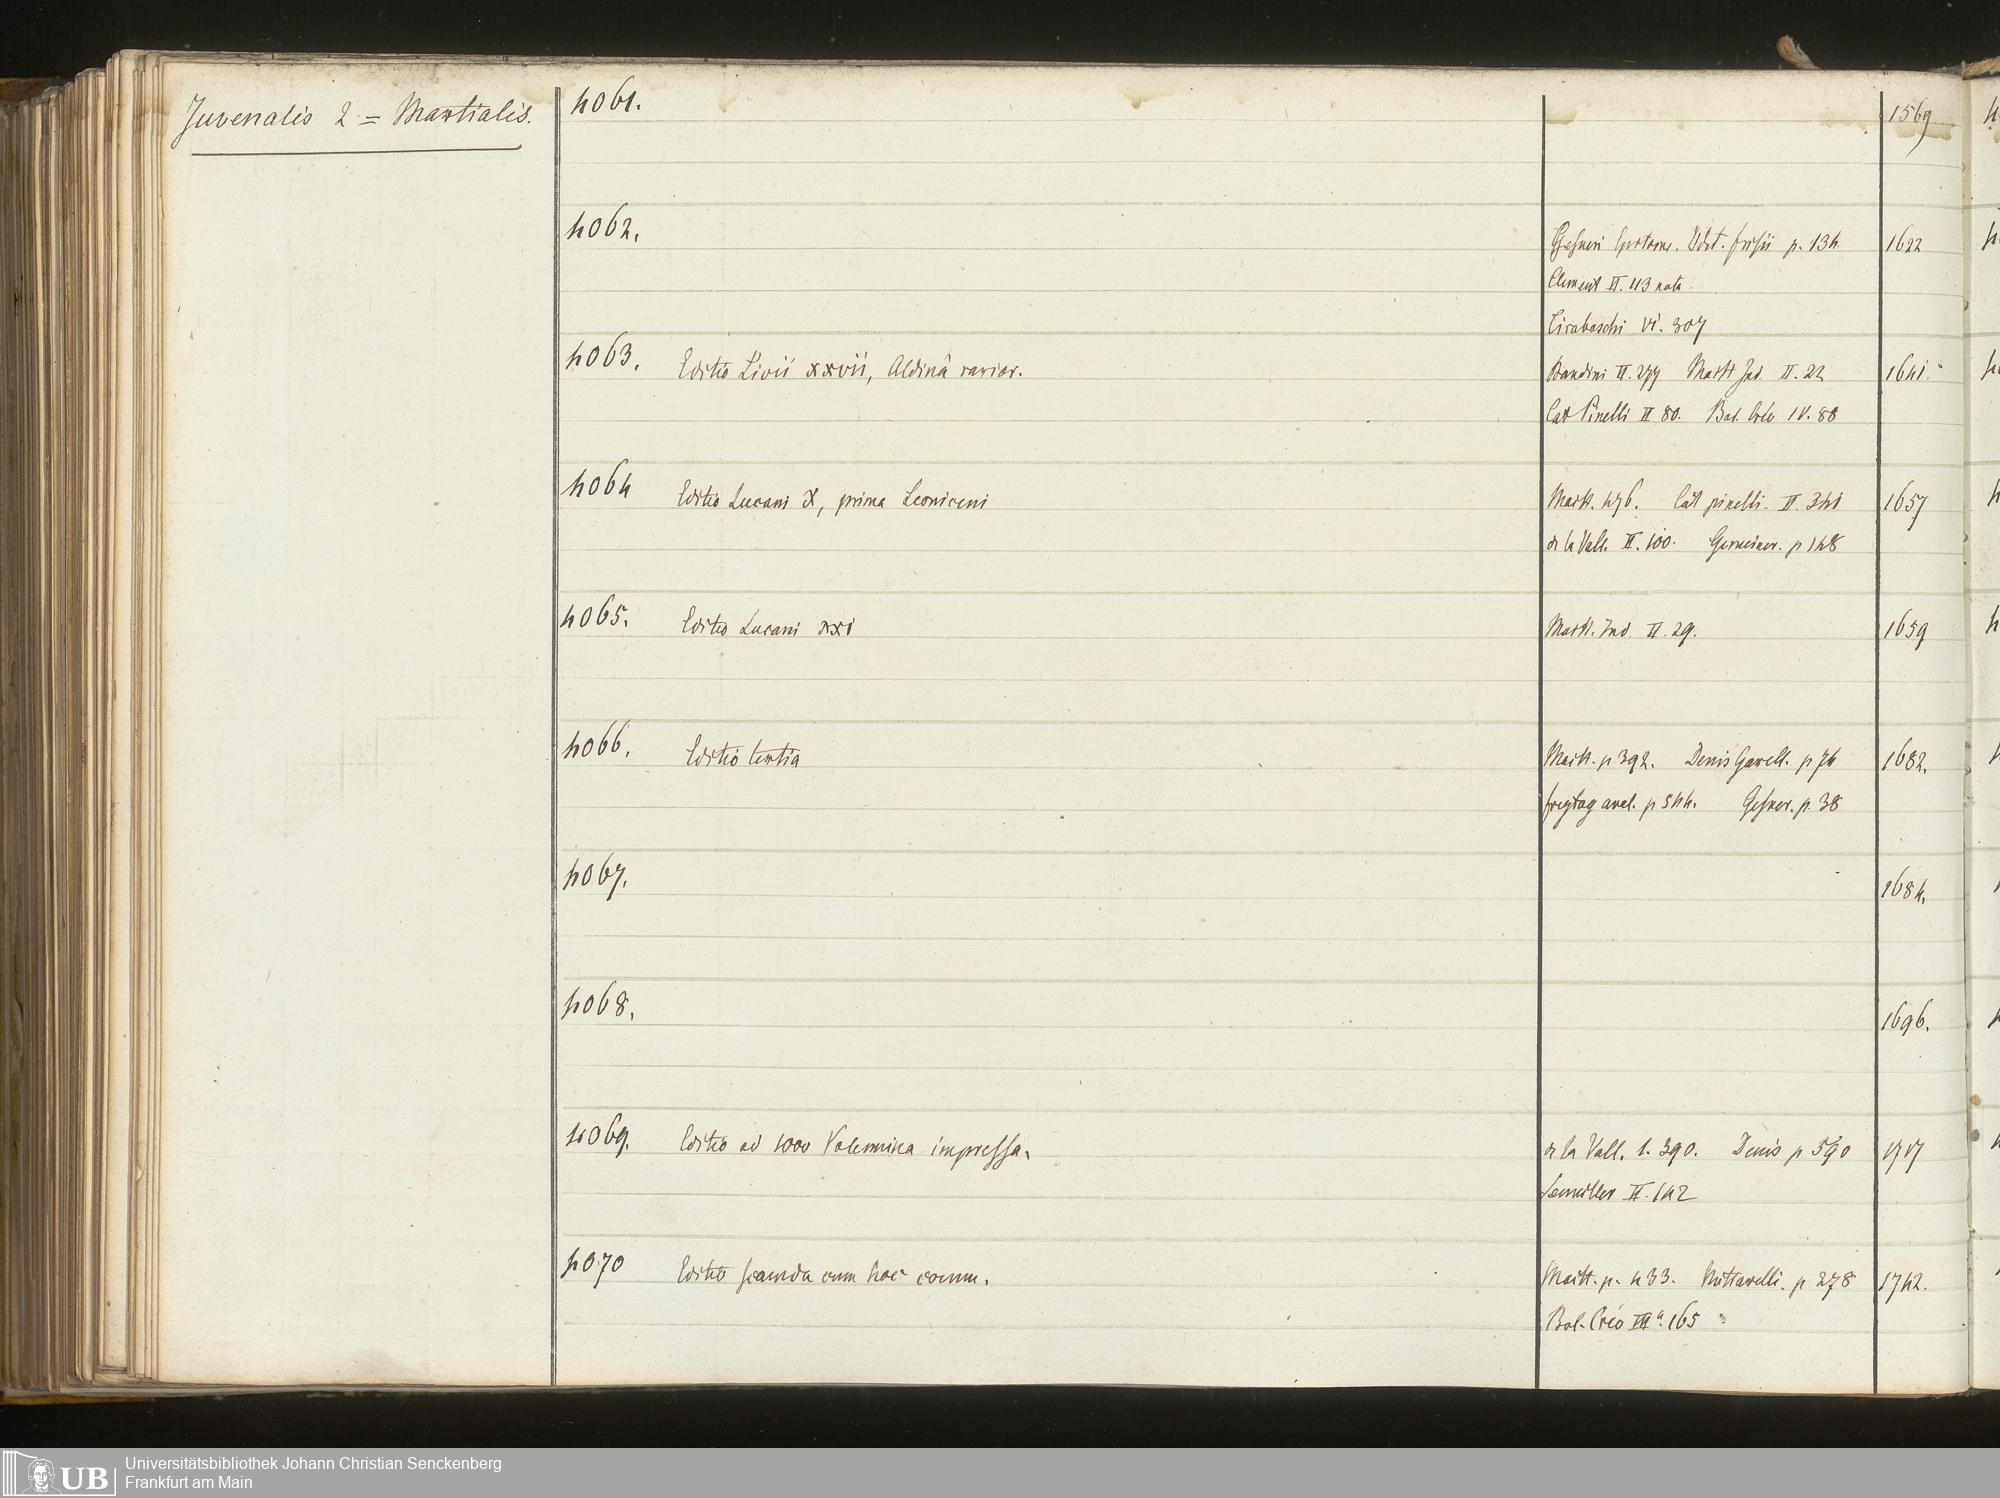 Juvenalis 2 = Martialis.
4061. 1569
4062. Gesneri Epitome. p. 134 1622
Clement II. 43 nota
Tiraboschi VI. 307
4063. Editio Livii xxvii, Aldinâ rarior. Bandini II. 277 Maitt Ind. II. 22 1641.
Cat Pinelli II 80. IV. 88
4064 Editio Lucani X, prima Leoniceni Maitt. 476. Cat pinelli. II. 341 1657
de la Vall. II. 100. Gemeiner. p 148
4065. Editio Lucani xxi Maitt. Ind. II. 29. 1659
4066. Editio tertia Maitt. p 392. Denis Garell. p 76 1682.
freytag anal. p 544. Gesner. p. 38
4067. 1684.
4068. 1696.
4069. Editio ad 1000 Volumina impressa. de la Vall. 1. 390. Denis p 590 1717
Seemiller II. 142
4070 Editio secunda cum hoc comm. Maitt. p. 433. Mittarelli. p 278 1742.
165
UB
Universitätsbibliothek Johann Christian Senckenberg
Frankfurt am Main